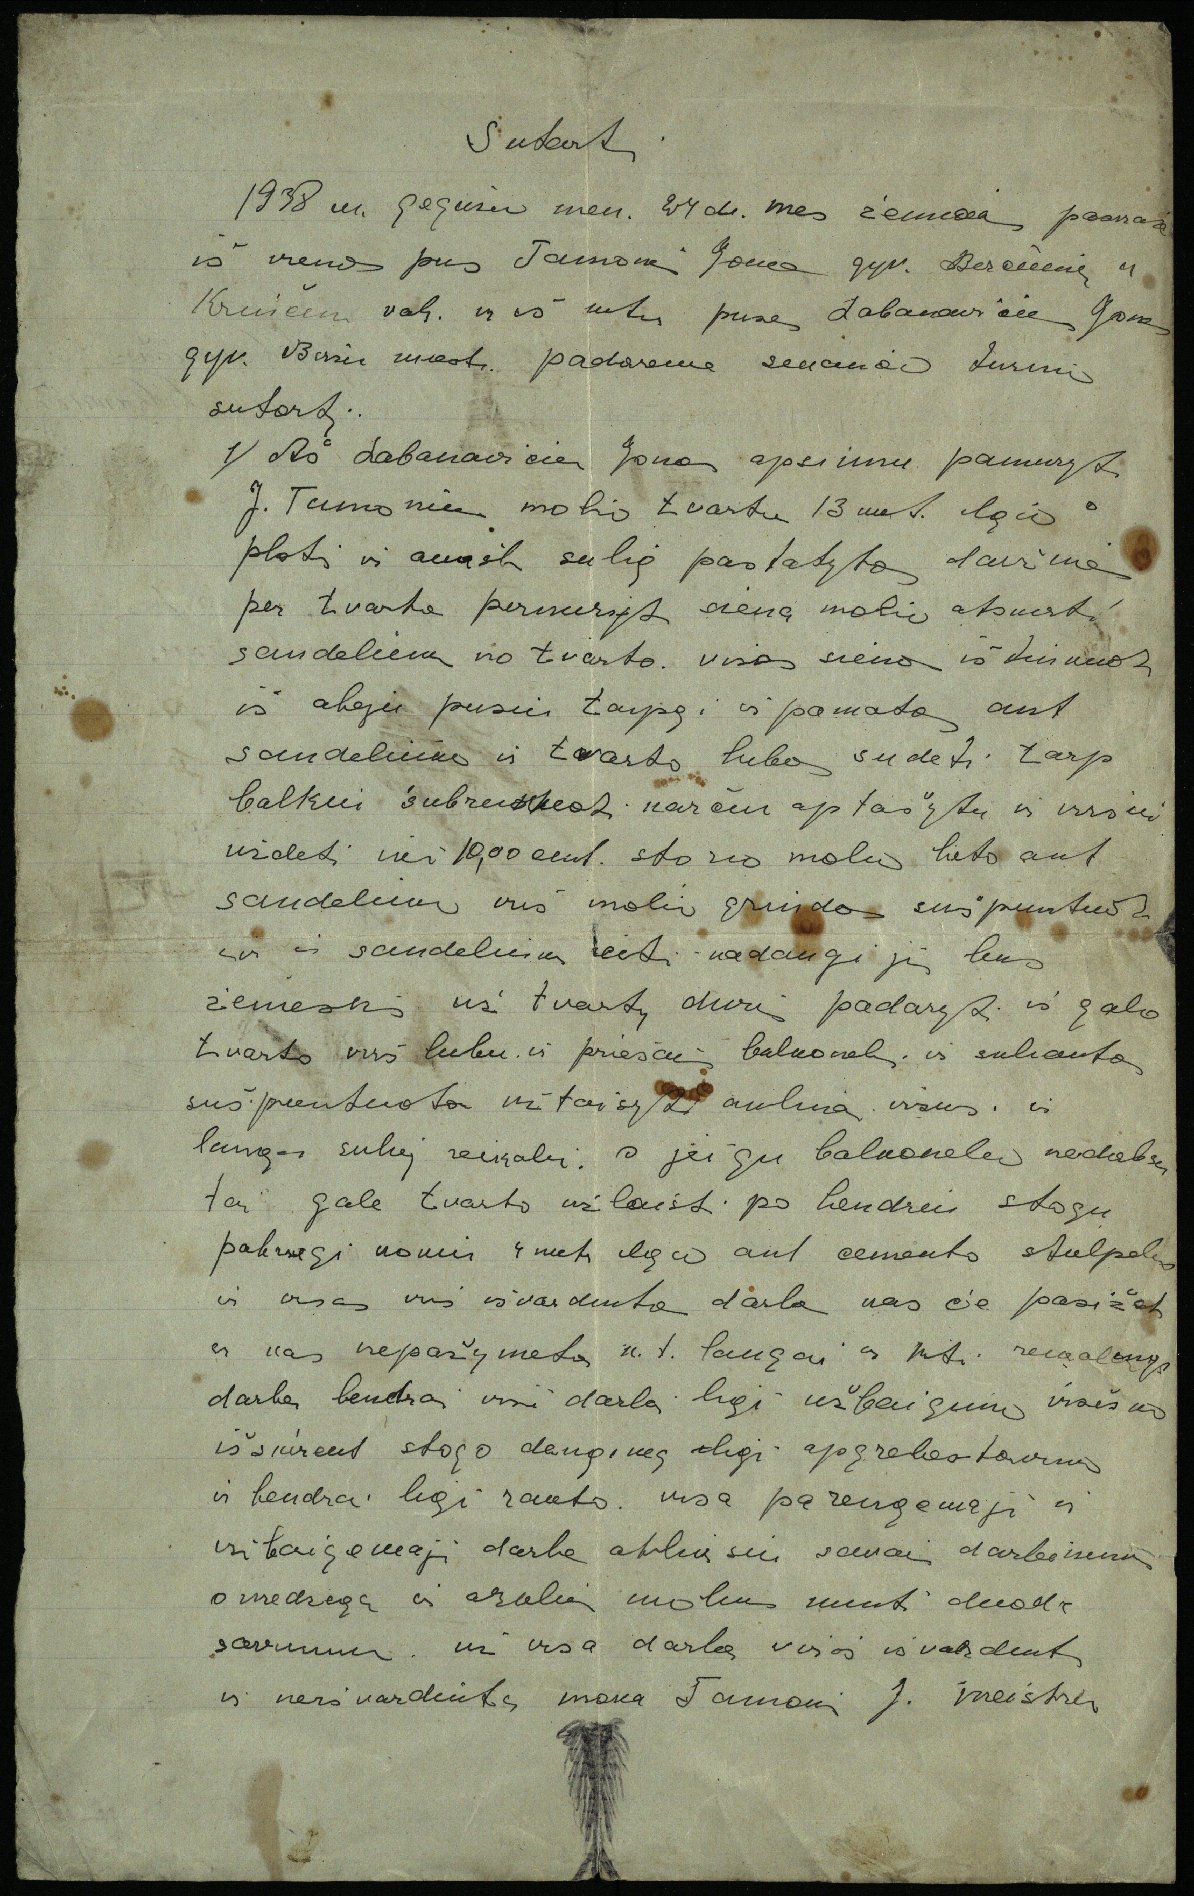 Sutarti
1938 m. gegužiu men. 24 d. mes žemiau pasiraše
iš vienos pus Tamoni Jona gyv. Berčiūnių
Kreičiu val. ir iš kitu puses Labanavičiu Jonas
gyv. Biržu miest. padareme sekančio turinio
sutarti.
1/ Aš Labanavičiu Jonas apsiimu pamuryt
J. Tamoniu molio tvartu 13 met. ilgio o
ploti ir aukšti sulig pastatytos
per tvarta permuryt siena molio atskirti
sandeliuku no tvarto. visas siena ištinkuot
iš abeju pusiu taipgi ir pamatas ant
sandeliuko ir tvarto lubas sudeti tarp
balkiu karčiu aptašytu ir viršui
uždeti iki 10,00 cent. storio molio lieto ant
sandeliuko virš molio grindas sušpuntuot
ir sandeliuku eiti kadangi jis bus
žemesnis už tvartą duris padaryt iš galo
tvarto virš lubu ir priešais balkoneli ir sukaltas
sušpuntuota užtaisyti aklinai visus ir
langas sulig reikalui. o jeigu balkonelio nedabsu
tai gale tvarto užlaisti po bendrui stogu
pabrugi 4 met ilgio ant cemento stulpeliu
ir visas virš išvardinta darba kas čia pasižet
ir kas nepažymeta k.t. langai ir kiti reikalinga
darba bendrai visi darbai ligi užbaigimo visiško
išskirent stogo dengimą ligi apgrebestavimo
ir bendrai ligi rakto. visa parengemaji ir
užbaigemaji darba atliksiu savai darbininkais
o medzega ir arklius molius minti duoda
savininku. už visa darba viršiš išvardinta
ir neišvardinta moka Tamoni J. meistrui